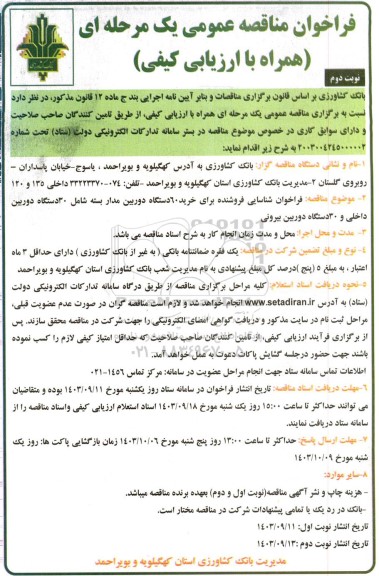 فراخوان مناقصه عمومی یک مرحله ای
(همراه با ارزیابی کیفی)
نوبت دوم
بانک کشاورزی بر اساس قانون برگزاری مناقصات و بنابر آیین نامه اجرایی بند ج ماده ۱۲ قانون مذکور، در نظر دارد
نسبت به برگزاری مناقصه عمومی یک مرحله ای همراه با ارزیابی کیفی، از طریق تامین کنندگان صاحب صلاحیت
و دارای سوابق کاری در خصوص موضوع مناقصه در بستر سامانه تدارکات الکترونیکی دولت (ستاد) تحت شماره
۲۰۰۳۰۰۴۲۴۵۰۰۰۰۰۲ به شرح زیر اقدام نماید:
۱-نام و نشانی دستگاه مناقصه گزار: بانک کشاورزی به آدرس کهگیلویه و بویراحمد ، یاسوج-خیابان پاسداران -
روبروی گلستان ۲-مدیریت بانک کشاورزی استان کهگیلویه و بویراحمد -تلفن: ۰۷۴-۳۳۲۲۳۳۷۰ داخلی ۱۳۵ و ۱۲۰
۲- موضوع مناقصه: فراخوان شناسایی فروشنده برای خرید۶۰دستگاه دوربین مدار بسته شامل ۳۰دستگاه دوربین
داخلی و ۳۰دستگاه دوربین بیرونی
۳- مدت و محل اجرا: محل و مدت زمان انجام کار به شرح اسناد مناقصه می باشد.
۴- نوع و مبلغ تضمین شرکت در مناقصه: یک فقره ضمانتنامه بانکی ( به غیر از بانک کشاورزی ) دارای حداقل ۳ ماه
اعتبار ، به مبلغ ۵ (پنج )درصد کل مبلغ پیشنهادی به نام مدیریت شعب بانک کشاورزی استان کهگیلویه و بویراحمد
۵-نحوه دریافت اسناد استعلام: کلیه مراحل برگزاری مناقصه از طریق درگاه سامانه تدارکات الکترونیکی دولت
(ستاد) به آدرس www.setadiran.ir انجام خواهد شد و لازم است مناقصه گران در صورت عدم عضویت قبلی،
مراحل ثبت نام در سایت مذکور و دریافت گواهی امضای الکترونیکی را جهت شرکت در مناقصه محقق سازند. پس
از برگزاری فرآیند ارزیابی کیفی، از تامین کنندگان صاحب صلاحیت که حداقل امتیاز کیفی لازم را کسب نموده
باشند جهت حضور درجلسه گشایش پاکات دعوت به عمل خواهد آمد.
اطلاعات تماس سامانه ستاد جهت انجام مراحل عضویت در سامانه: مرکز تماس ۱۴۵۶-۰۲۱
۶-مهلت دریافت اسناد مناقصه: تاریخ انتشار فراخوان در سامانه ستاد روز یکشنبه مورخ ۱۴۰۳/۰۹/۱۱ بوده و متقاضیان
می توانند حداکثر تا ساعت ۱۵:۰۰ روز یک شنبه مورخ ۱۴۰۳/۰۹/۱۸ اسناد استعلام ارزیابی کیفی واسناد مناقصه را از
سامانه ستاد دریافت نمایند.
۷- مهلت ارسال پاسخ: حداکثر تا ساعت ۱۳:۰۰ روز پنج شنبه مورخ ۱۴۰۳/۱۰/۰۶ زمان بازگشایی پاکت ها: روز یک
شنبه مورخ ۱۴۰۳/۱۰/۰۹
۸-سایر موارد:
- هزینه چاپ و نشر آگهی مناقصه(نوبت اول و دوم) بعهده برنده مناقصه میباشد.
-بانک در رد یک یا تمامی پیشنهادات شرکت در مناقصه مختار است.
تاریخ انتشار نوبت اول: ۱۴۰۳/۰۹/۱۱
تاریخ انتشار نوبت دوم :۱۴۰۳/۰۹/۱۳
مدیریت بانک کشاورزی استان کهگیلویه و بویراحمد